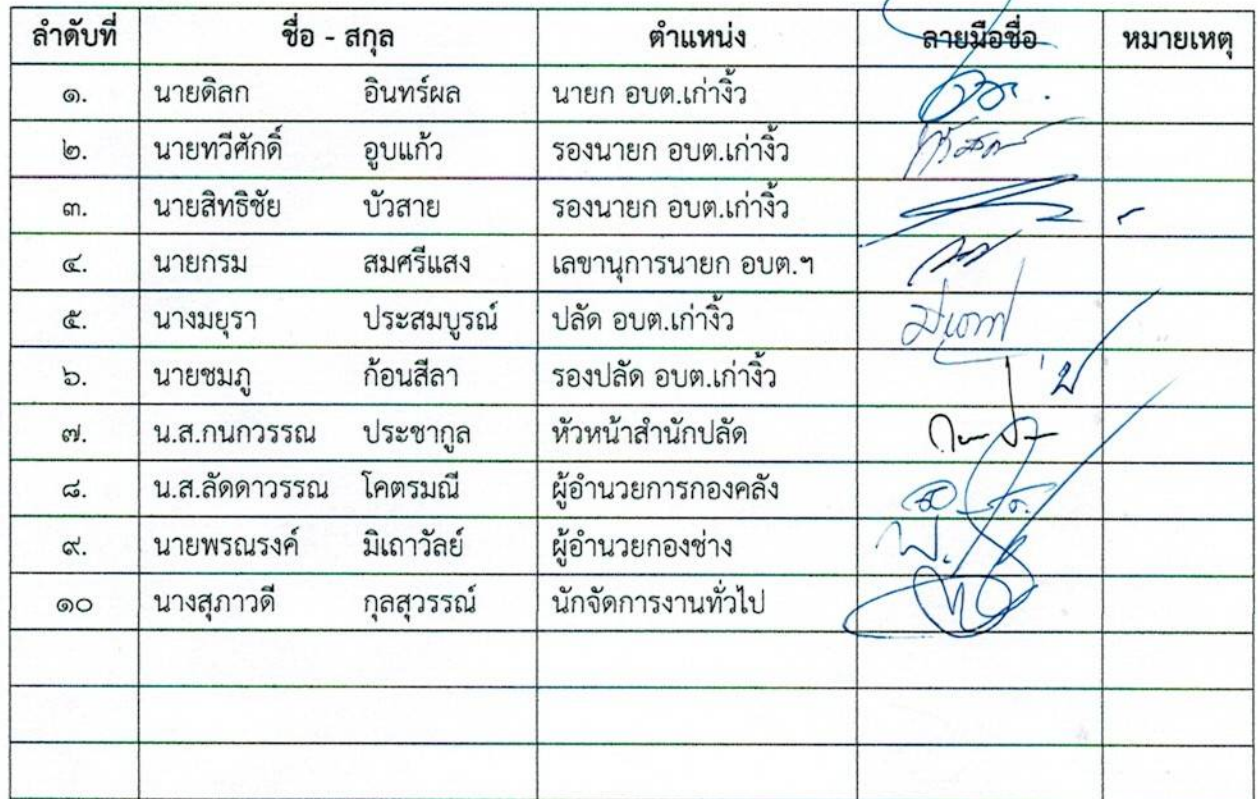 ลำดับที่ ชื่อ - สกุล ตำแหน่ง ลายมือชื่อ หมายเหตุ
๑. นายดิลก อินทร์ผล นายก อบต.เก่างิ้ว
๒. นายทวีศักดิ์ อูบแก้ว รองนายก อบต.เก่างิ้ว
๓. นายสิทธิชัย บัวสาย รองนายก อบต.เก่างิ้ว
๔. นายกรม สมศรีแสง เลขานุการนายก อบต.ฯ
๕. นางมยุรา ประสมบูรณ์ ปลัด อบต.เก่างิ้ว
๖. นายชมภู ก้อนสีลา รองปลัด อบต.เก่างิ้ว
๗. น.ส.กนกวรรณ ประชากูล หัวหน้าสำนักปลัด
๘. น.ส.ลัดดาวรรณ โคตรมณี ผู้อำนวยการกองคลัง
๙. นายพรณรงค์ มิเถาวัลย์ ผู้อำนวยกองช่าง
๑๐ นางสุภาวดี กุลสุวรรณ์ นักจัดการงานทั่วไป